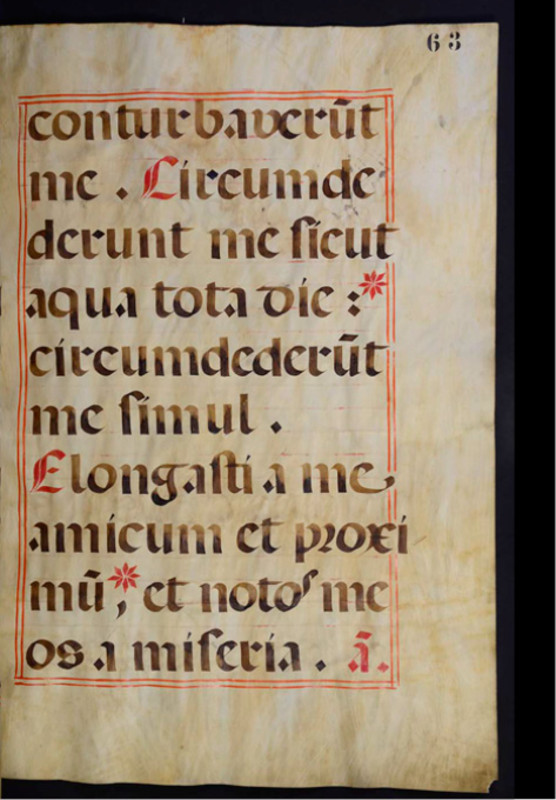 63
conturbaverūt
me . Circumde
derunt me ſicut
aqua tota die : *
circumdederūt
me ſimul .
Elongaſti a me
amicum et proxi
mū *, et notoſ me
os a miſeria . ā.